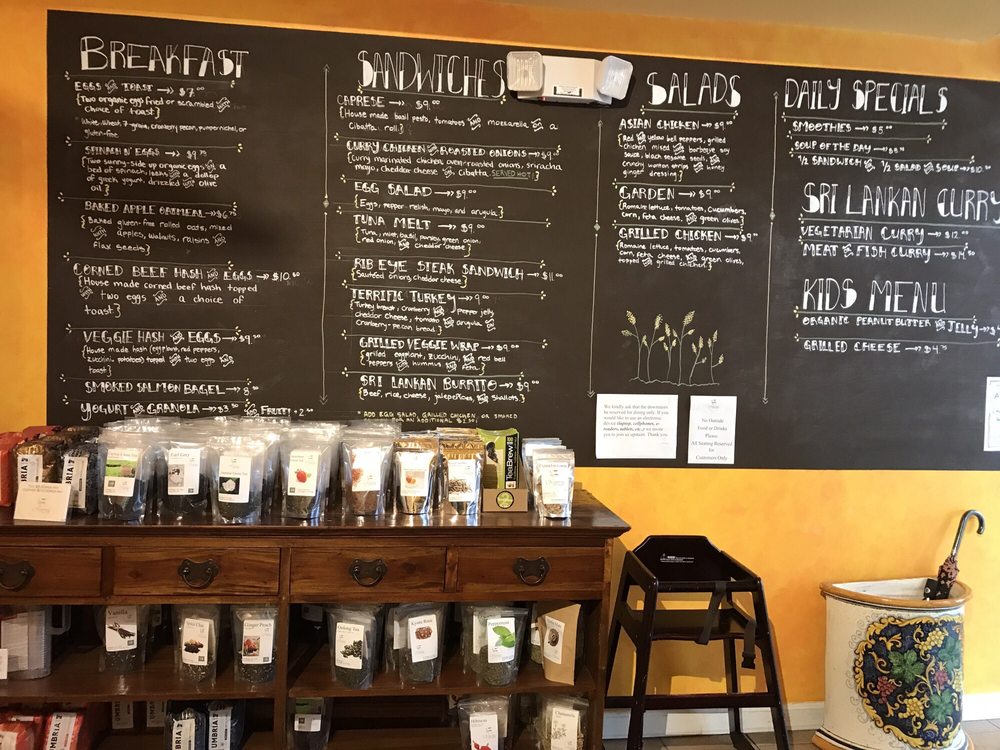 BREAKFAST
EGGS AND TOAST → $7.00
{Two organic egg fried or scrambled AND
choice of toast}
*White, wheat, 7-grain, cranberry pecan, pumpernickel, or
gluten-free
SPINACH N' EGGS → $9.75
{Two sunny-side up organic eggs a
bed of spinach, a dollop
of greek yogurt, drizzled olive
oil}
BAKED APPLE OATMEAL → $6.75
{Baked gluten-free rolled oats, mixed
apples, walnuts, raisins AND
flax seeds}
CORNED BEEF HASH AND EGGS → $10.50
{House made corned beef hash topped
two eggs AND a choice of
toast}
VEGGIE HASH AND EGGS → $9.50
{House made hash (eggplant, red peppers,
zucchini, potatoes) topped two eggs
toast}
SMOKED SALMON BAGEL → 8.
YOGURT AND GRANOLA → $3.50 FRUIT! + 2.50
SANDWICHES
CAPRESE → $9.00
{House made basil pesto, tomatoes AND mozzarella a
Cibatta roll}
CURRY CHICKEN AND ROASTED ONIONS → $9.00
{Curry marinated chicken, oven-roasted onions, sriracha
mayo, cheddar cheese Cibatta. SERVED HOT!}
EGG SALAD → $9.00
{Eggs, pepper relish, mayo, and arugula}
TUNA MELT → $9.00
{Tuna, mint, basil, parsley, green onion,
red onion AND cheddar cheese}
RIB EYE STEAK SANDWICH → $11.00
{Sautéed onions, cheddar cheese}
TERRIFIC TURKEY → 9.00
{Turkey breast, cranberry AND pepper jelly,
cheddar cheese, tomato AND arugula
Cranberry-pecan bread}
GRILLED VEGGIE WRAP → $9.00
{grilled eggplant, zucchini, AND red bell
peppers hummus AND feta}
SRI LANKAN BURRITO → $9.00
{Beef, rice, cheese, jalepeños, AND shallots}
* ADD EGG SALAD, GRILLED CHICKEN, OR SMOKED
FOR AN ADDITIONAL $2.50!
SALADS
ASIAN CHICKEN → $9.00
{Red AND yellow bell peppers, grilled
chicken mixed barbeque soy
sauce, black sesame seeds,
crunchy wonton strips honey
ginger dressing}
GARDEN → $9.00
{Romaine lettuce, tomatoes, cucumbers,
corn, feta cheese, AND green olives}
GRILLED CHICKEN → $9.00
{Romaine lettuce, tomatoes, cucumbers,
corn, feta cheese, AND green olives,
topped grilled chicken}
DAILY SPECIALS
SMOOTHIES → $5.00
SOUP OF THE DAY → $5.00
1/2 SANDWICH 1/2 SALAD SOUP → $10.
SRI LANKAN CURRY
VEGETARIAN CURRY → $12.00
MEAT OR FISH CURRY → $14.
KIDS MENU
ORGANIC PEANUT BUTTER AND JELLY → $4.
GRILLED CHEESE → $4.75
We kindly ask that the downstairs
be reserved for dining only. If you
would like to use an electronic
device (laptop, cellphones, e-
readers, tablets, etc.) we invite
you to join us upstairs. Thank you
No Outside
Food or Drinks
Please
All Seating Reserved
for
Customers Only
UMBRIA
Earl Grey
TeaBrew
Vanilla
Chai
Ginger Peach
Oolong Tea
Peppermint
UMBRIA
UMBRIA
Hibiscus